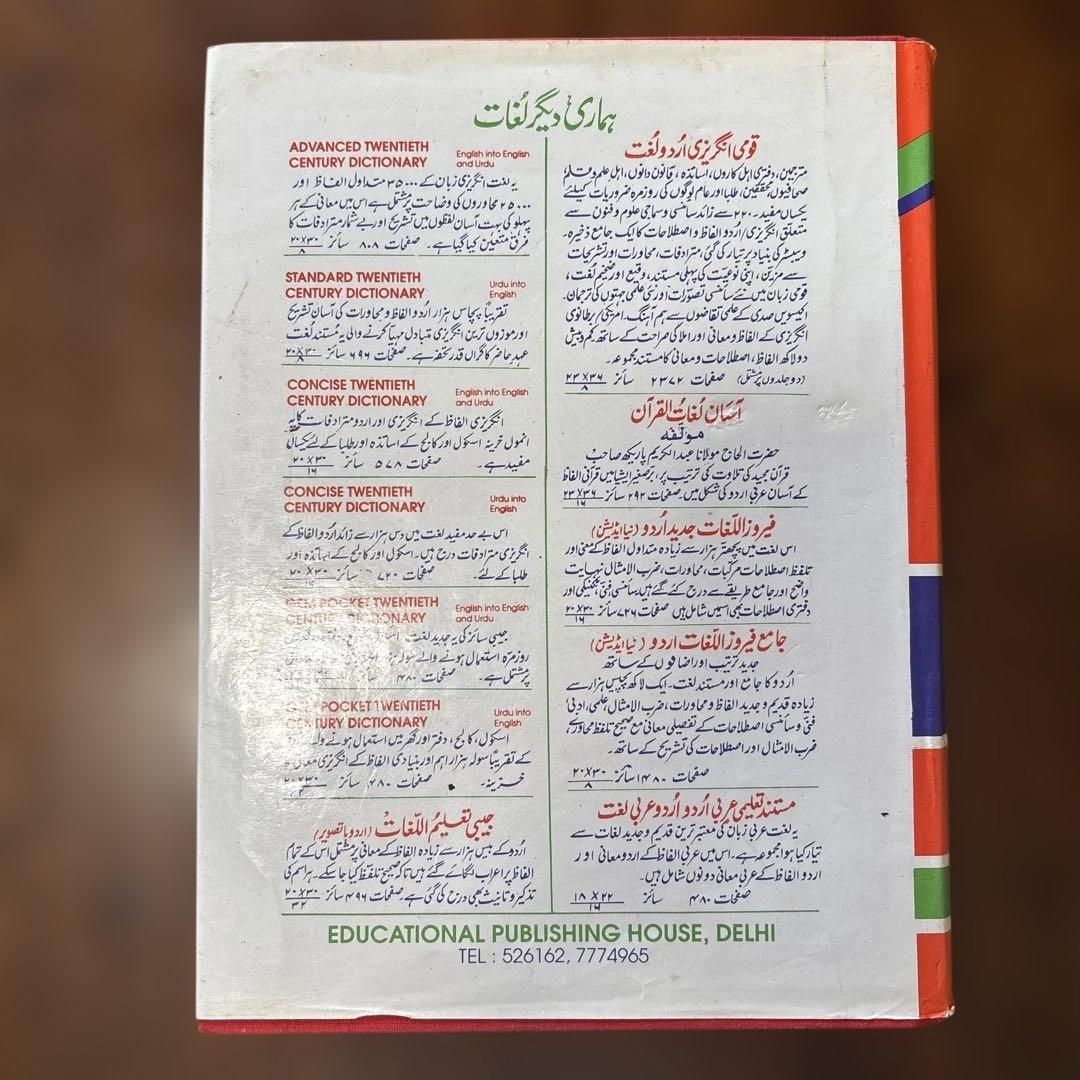 ہماری دیگر لغات
قومی انگریزی اُردو لُغت
مترجمین، دفتری اہل کاروں، اساتذہ، قانون دانوں، اہل علم و قلم
صحافیوں، محققین، طلبا اور عام لوگوں کی روزمرہ ضروریات کیلئے
یکساں مفید۔ ۲۲۰ سے زائد سائنسی و سماجی علوم و فنون سے
متعلق انگریزی/ اُردو الفاظ و اصطلاحات کا ایک جامع ذخیرہ۔
ویبسٹر کی بنیاد پر تیار کی گئی، مترادفات، محاورات اور تشریحات
سے مزین، اپنی نوعیّت کی پہلی مستند، وقیع اور ضخیم لُغت،
قومی زبان میں نئے سائنسی تصوّرات اور نئی علمی جہتوں کی ترجمان۔
اکیسویں صدی کے علمی تقاضوں سے ہم آہنگ۔ امریکی/ برطانوی
انگریزی کے الفاظ و معانی اور املا کی صراحت کے ساتھ کم و بیش
دو لاکھ الفاظ، اصطلاحات و معانی کا مستند مجموعہ۔
(دو جلدوں پر مشتمل) صفحات ۲۳۷۲ سائز ۲۳x۳۶/۸
آسان لُغاتُ القرآن
مولّفہ
حضرت الحاج مولانا عبدالکریم پاریکھ صاحب
قرآن مجید کی تلاوت کی ترتیب پر، برّصغیر ایشیا میں قرآنی الفاظ
کے آسان عربی اردو کی شکل میں صفحات ۲۹۲ سائز ۲۳x۳۶/۱۶
فیروز اللّغات جدید اُردو (نیا ایڈیشن)
اس لغت میں پچھتّر ہزار سے زیادہ متداول الفاظ کے معنی اور
تلفظ اصطلاحات مرکبات، محاورات، ضرب الامثال نہایت
واضح اور جامع طریقے سے درج کئے گئے ہیں سائنسی فنی تکنیکی اور
دفتری اصطلاحات بھی اسمیں شامل ہیں صفحات ۷۲۶ سائز ۲۰x۳۰/۱۶
جامع فیروز اللّغات اردو (نیا ایڈیشن)
جدید ترتیب اور اضافوں کے ساتھ
اُردو کا جامع اور مستند لغت۔ ایک لاکھ پچیس ہزار سے
زیادہ قدیم و جدید الفاظ و محاورات، ضرب الامثال علمی، ادبی
فنی و سائنسی اصطلاحات کے تفصیلی معانی مع صحیح تلفظ محاورے،
ضرب الامثال اور اصطلاحات کی تشریح کے ساتھ۔
صفحات ۱۴۸۰ سائز ۲۰x۳۰/۸
مستند تعلیمی عربی اُردو اُردو عربی لغت
یہ لغت عربی زبان کی معتبر ترین قدیم و جدید لغات سے
تیار کیا ہوا مجموعہ ہے۔ اس میں عربی الفاظ کے اردو معانی اور
اردو الفاظ کے عربی معانی دونوں شامل ہیں۔
صفحات ۴۸۰ سائز ۱۸x۲۲/۱۶
ADVANCED TWENTIETH
CENTURY DICTIONARY English into English and Urdu
یہ لغت انگریزی زبان کے ۳۵۰۰۰ متداول الفاظ اور
۲۵۰۰۰ محاوروں کی وضاحت پر مشتمل ہے اس میں معانی کے ہر
پہلو کی بہت آسان لفظوں میں تشریح اور بے شمار مترادفات کا
فرق متعین کیا گیا ہے۔ صفحات ۸۰۸ سائز ۲۰x۳۰/۸
STANDARD TWENTIETH
CENTURY DICTIONARY Urdu into English
تقریباً پچاس ہزار اُردو الفاظ و محاورات کی آسان تشریح
اور موزوں ترین انگریزی متبادل مہیا کرنے والی یہ مُستند لُغت
عہدِ حاضر کا گراں قدر تحفہ ہے۔ صفحات ۶۹۶ سائز ۲۰x۳۰/۸
CONCISE TWENTIETH
CENTURY DICTIONARY English into English and Urdu
انگریزی الفاظ کے انگریزی اور اردو مترادفات کا یہ
انمول خزینہ اسکول اور کالج کے اساتذہ اور طلبا کے لئے یکساں
مفید ہے۔ صفحات ۵۷۸ سائز ۲۰x۳۰/۱۶
CONCISE TWENTIETH
CENTURY DICTIONARY Urdu into English
اس بے حد مفید لغت میں دس ہزار سے زائد اُردو الفاظ کے
انگریزی مترادفات درج ہیں۔ اسکول اور کالج کے اساتذہ اور
طلبا کے لئے۔ صفحات ۷۲۰ سائز ۲۰x۳۰
GEM POCKET TWENTIETH
CENTURY DICTIONARY English into English and Urdu
جیبی سائز کی یہ جدید لغت
روزمرّہ استعمال ہونے والے سولہ ہزار
پر مشتمل ہے۔ صفحات ۴۸۰
POCKET TWENTIETH
CENTURY DICTIONARY Urdu into English
اسکول، کالج، دفتر اور گھر میں استعمال ہونے والے
کے تقریباً سولہ ہزار اہم اور بنیادی الفاظ کے انگریزی معانی کا
خزینہ۔ صفحات ۴۸۰ سائز ۲۰x۳۰
جیبی تعلیمُ اللّغات (اردو باتصویر)
اُردو کے بیس ہزار سے زیادہ الفاظ کے معانی پر مشتمل اس کے تمام
الفاظ پر اعراب لگائے گئے ہیں تاکہ صحیح تلفظ کیا جا سکے۔ ہر اسم کی
تذکیر و تانیث بھی درج کی گئی ہے۔ صفحات ۴۹۶ سائز ۲۰x۳۰/۳۲
EDUCATIONAL PUBLISHING HOUSE, DELHI
TEL : 526162, 7774965